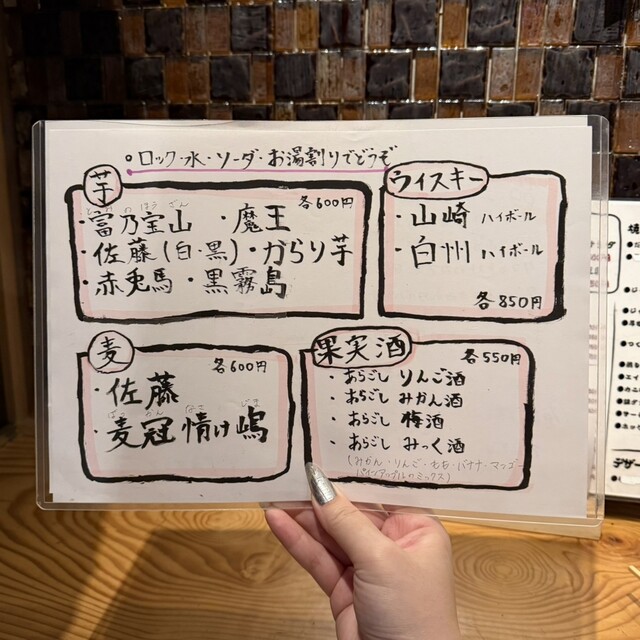 ・ロック・水・ソーダ・お湯割りでどうぞ
芋
各600円
・富乃宝山 ・魔王
・佐藤(白・黒)・がらり芋
・赤兎馬 ・黒霧島
ウィスキー
・山崎 ハイボール
・白州 ハイボール
各850円
麦
各600円
・佐藤
・麦冠 情け嶋
果実酒
各550円
・あらごし りんご酒
・あらごし みかん酒
・あらごし 梅酒
・あらごし みっく酒
(みかん・りんご・もも・バナナ・マンゴー
パインアップルのミックス)